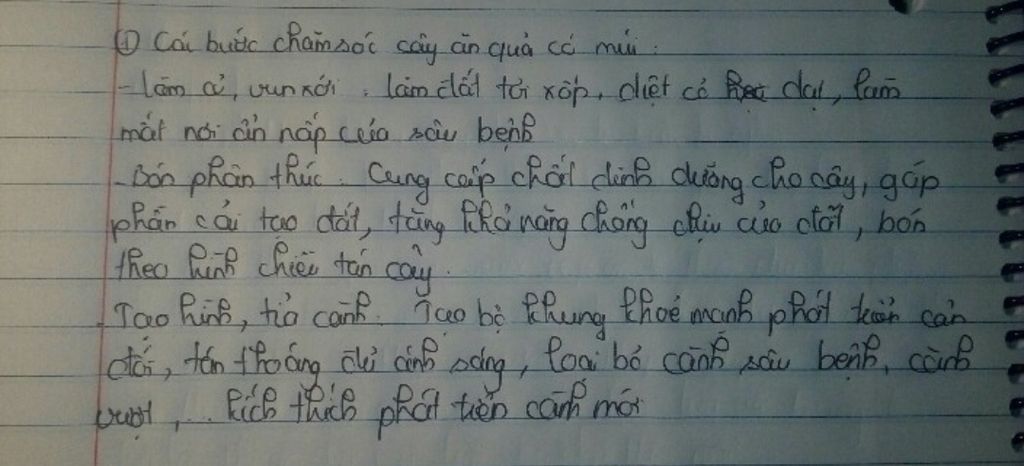 ① Các bước chăm sóc cây ăn quả có múi:
- Làm cỏ, vun xới: làm đất tơi xốp, diệt cỏ dại, làm
mất nơi ẩn nấp của sâu bệnh
- Bón phân thúc: Cung cấp chất dinh dưỡng cho cây, góp
phần cải tạo đất, tăng khả năng chống chịu của đất, bón
theo hình chiếu tán cây.
- Tạo hình, tỉa cành: Tạo bộ khung khoẻ mạnh phát triển cân
đối, tán thoáng đủ ánh sáng, loại bỏ cành sâu bệnh, cành
vượt, ... kích thích phát triển cành mới